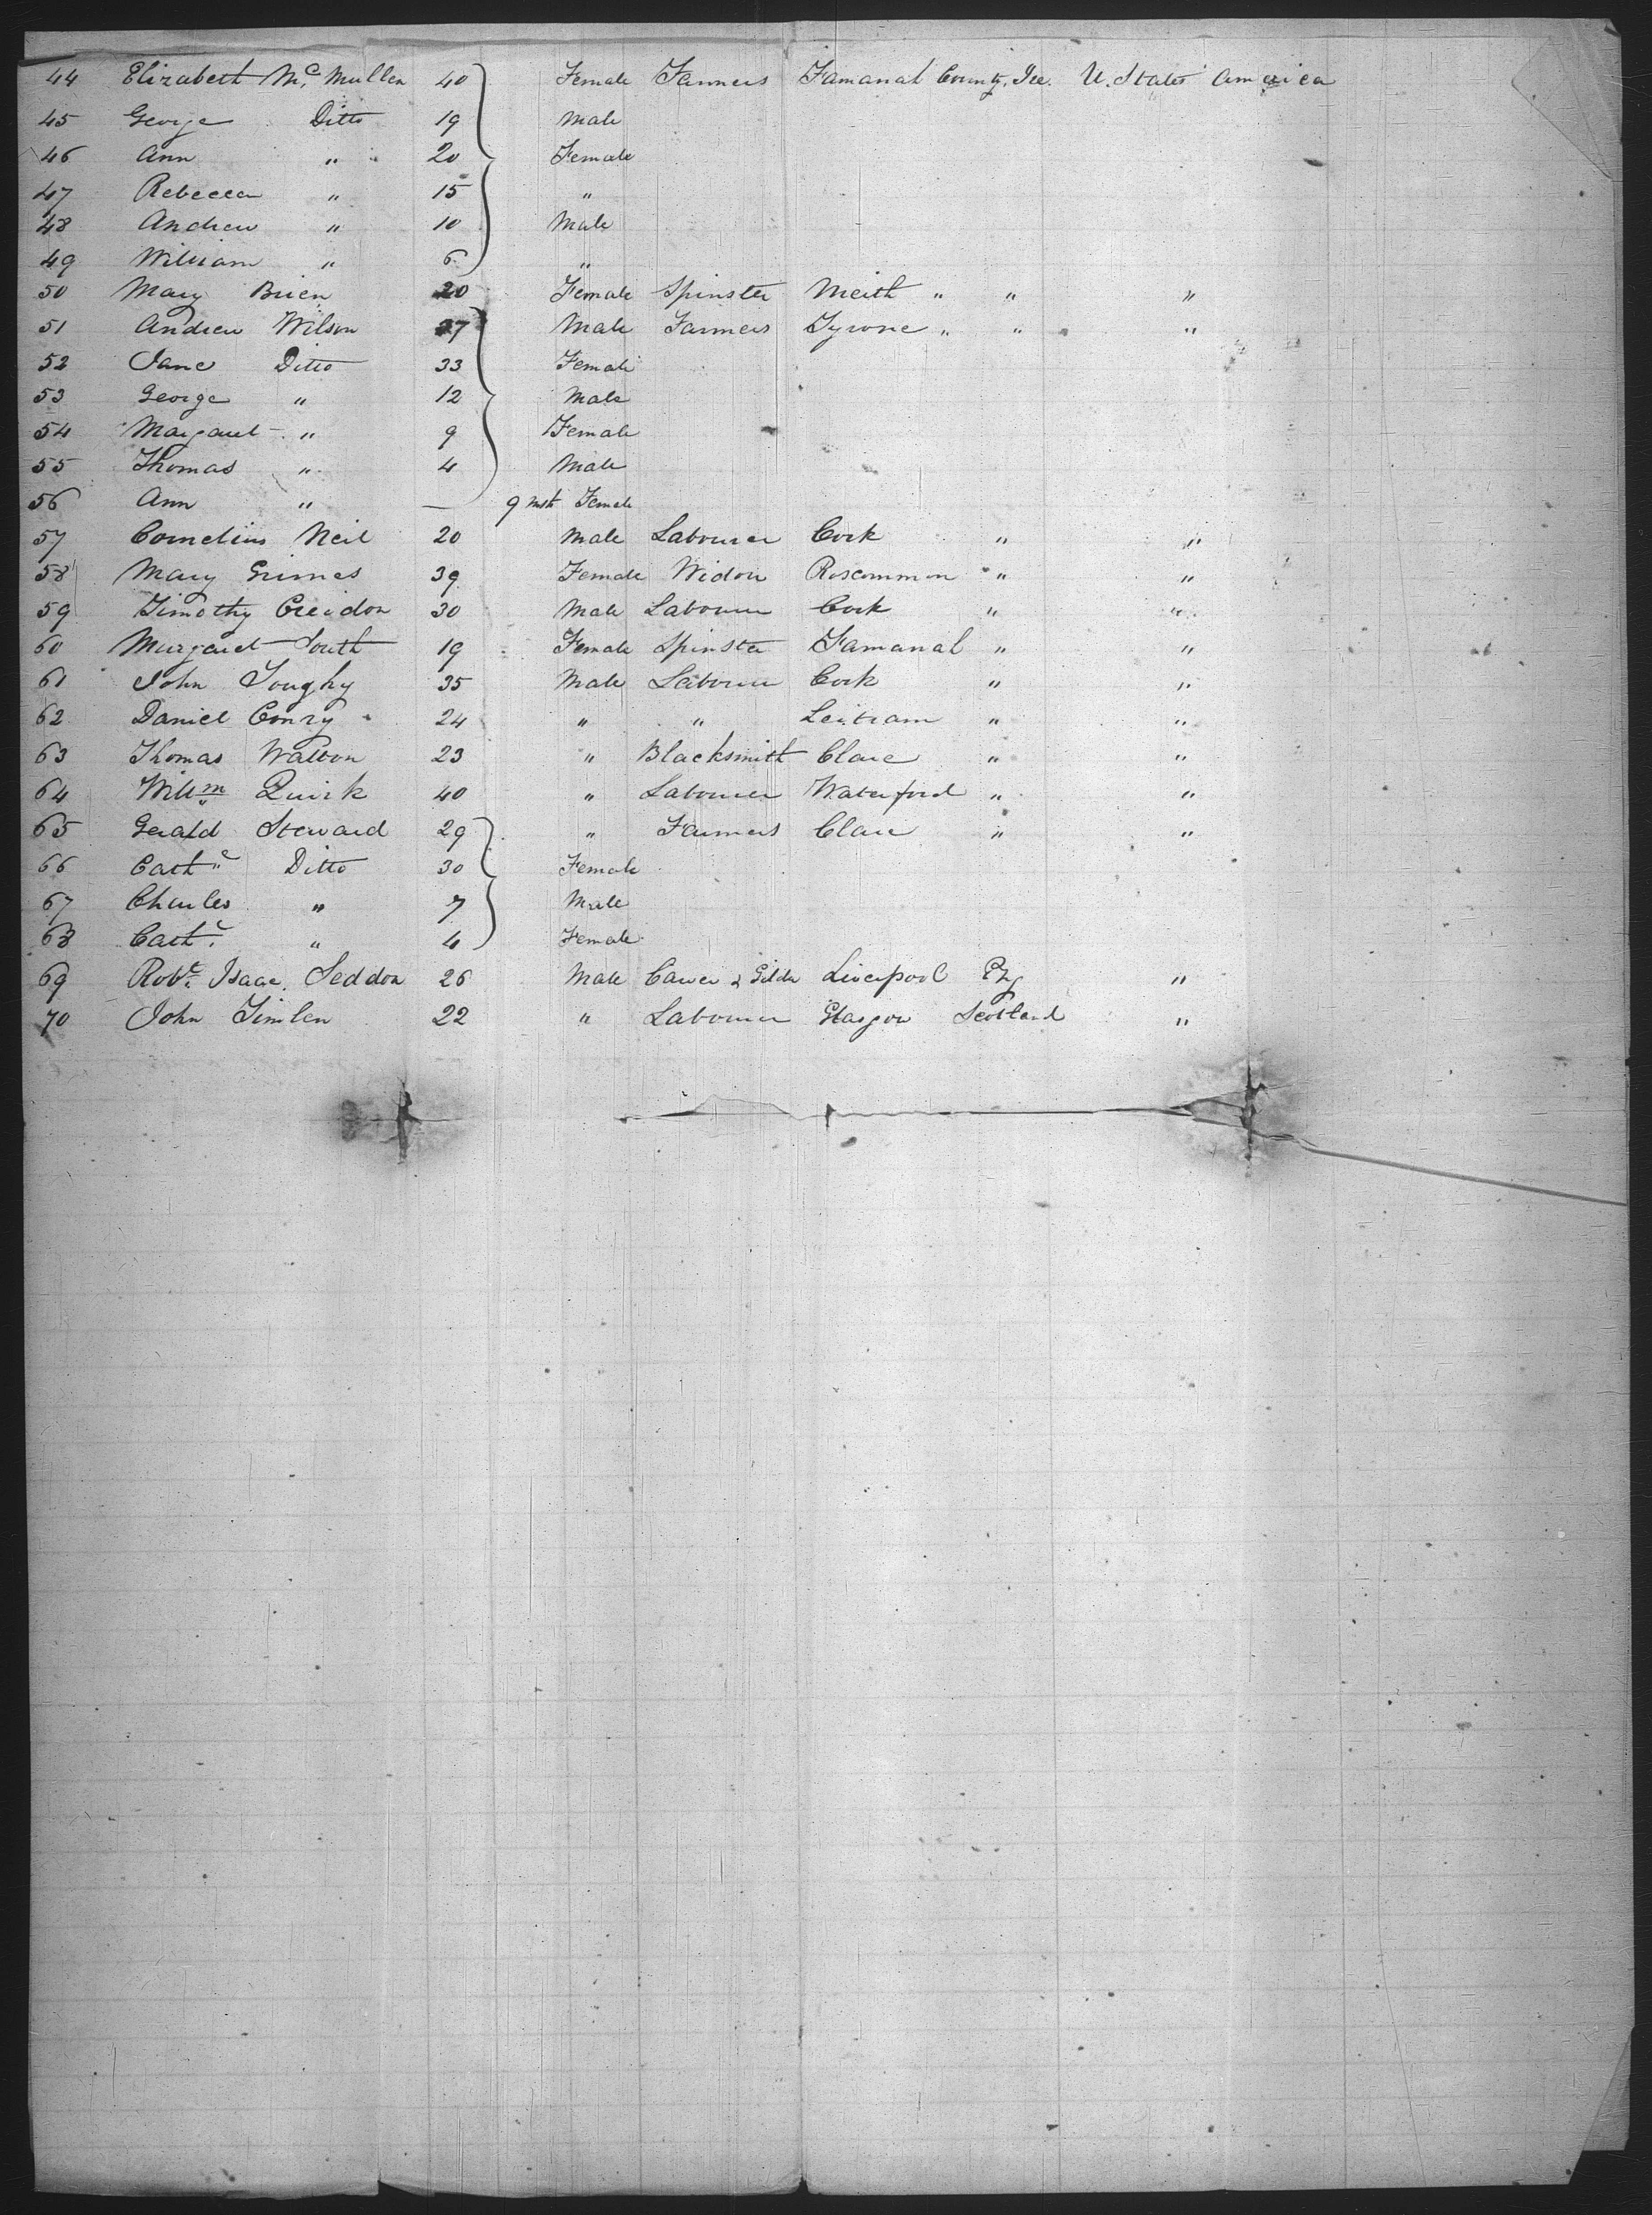 44 Elizabeth Mc Mullen 40 Female Farmers Famanah County, Ire. U. States America
45 George Ditto 19 Male
46 Ann " 20 Female
47 Rebecca " 15 "
48 Andrew " 10 Male
49 William " 6 "
50 Mary Brien 20 Female Spinster Meith " " "
51 Andrew Wilson 37 Male Farmers Tyrone " " "
52 Jane Ditto 33 Female
53 George " 12 Male
54 Margaret " 9 Female
55 Thomas " 4 Male
56 Ann " — 9 mth Female
57 Cornelius Neil 20 Male Labourer Cork " "
58 Mary Grimes 39 Female Widow Roscommon " "
59 Timothy Creidon 30 Male Labourer Cork " "
60 Margaret South 19 Female Spinster Famanah " "
61 John Toughy 35 Male Labourer Cork " "
62 Daniel Conry 24 " " Leitram " "
63 Thomas Walton 23 " Blacksmith Clare " "
64 Willm Quirk 40 " Labourer Waterford " "
65 Gerald Steward 29 " Farmers Clare " "
66 Cathe Ditto 30 Female
67 Charles " 7 Male
68 Cathe " 4 Female
69 Robt Isaac Seddon 26 Male Carver & Gilder Liverpool Eng "
70 John Timlen 22 " Labourer Glasgow Scotland "